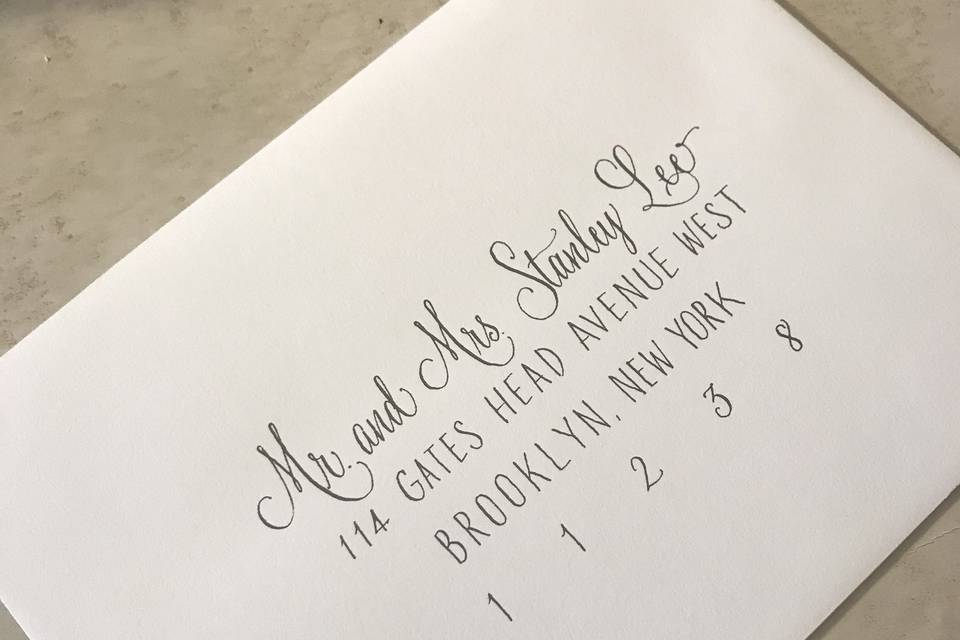 Mr. and Mrs. Stanley Lee
114 GATES HEAD AVENUE WEST
BROOKLYN, NEW YORK
1 1 2 3 8